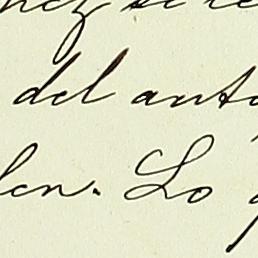 nez se re
del anto
len. Lo g